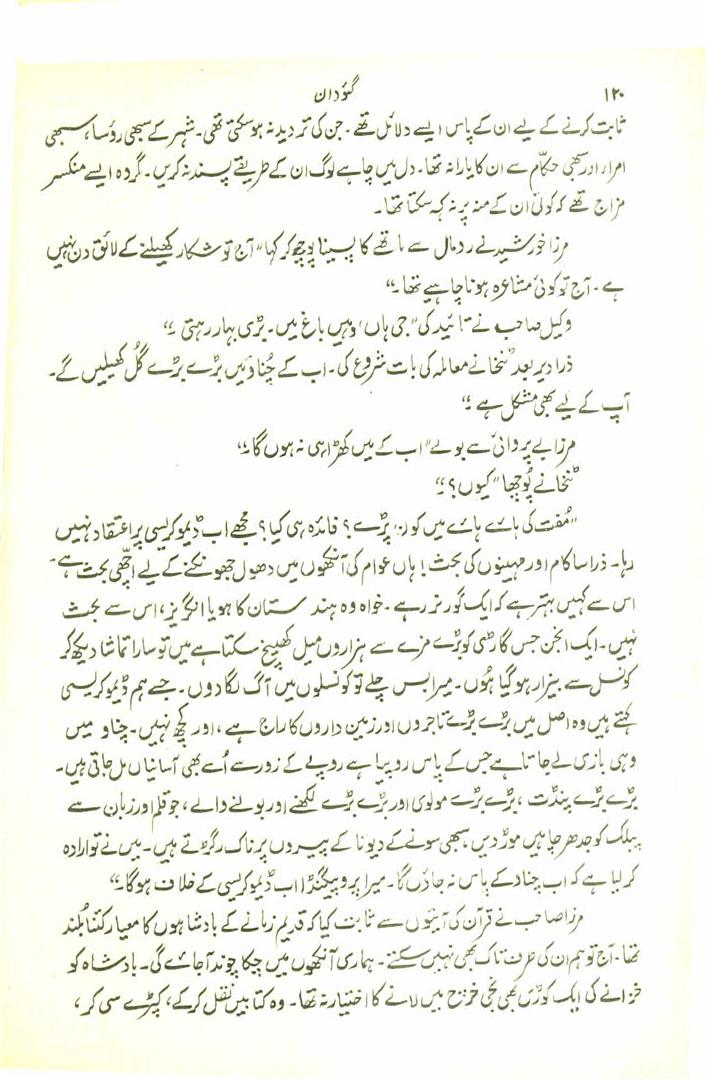 ۱۲۰ گئودان
ثابت کرنے کے لیے ان کے پاس ایسے دلائل تھے ۔ جن کی تردید نہ ہو سکتی تھی۔ شہر کے سبھی رؤسا، سبھی
امرار اور سبھی حکّام سے ان کا یارانہ تھا ۔ دل میں چاہے لوگ ان کے طریقے پسند نہ کریں ۔ گر وہ ایسے منکسر
مزاج تھے کہ کوئی ان کے منہ پر نہ کہہ سکتا تھا ۔
مرزا خورشید نے رومال سے ماتھے کا پسینا پوچھ کر کہا "آج تو شکار کھیلنے کے لائق دن نہیں
ہے ۔ آج تو کوئی مشاعرہ ہونا چاہیے تھا ۔"
وکیل صاحب نے تائید کی "جی ہاں' وہیں باغ میں۔ بڑی بہار رہتی ۔"
ذرا دیر بعد ٹنخا نے معاملہ کی بات شروع کی۔ اب کے چُناؤ میں بڑے بڑے گُل کھیلیں گے۔
آپ کے لیے بھی مشکل ہے ۔"
مرزا بے پروائی سے بولے "اب کے میں کھڑا ہی نہ ہوں گا ۔"
ٹنخا نے پُوچھا "کیوں؟"
"مُفت کی ہائے ہائے میں کون پڑے؟ فائدہ ہی کیا؟ مجھے اب ڈیموکریسی پر اعتقاد نہیں
رہا۔ ذرا سا کام اور مہینوں کی بحث! ہاں عوام کی آنکھوں میں دھول جھونکنے کے لیے اچھّی بحث ہے۔
اس سے کہیں بہتر ہے کہ ایک گورنر رہے ۔ خواہ وہ ہندستان کا ہو یا انگریز، اس سے بحث
نہیں ۔ ایک انجن جس گاڑی کو بڑے مزے سے ہزاروں میل کھینچ سکتا ہے میں تو سارا تماشا دیکھ کر
کونسل سے بیزار ہو گیا ہُوں۔ میرا بس چلے تو کونسلوں میں آگ لگا دوں ۔ جسے ہم ڈیموکریسی
کہتے ہیں وہ اصل میں بڑے بڑے تاجروں اور زمین داروں کا راج ہے ، اور کچھ نہیں۔ چناو میں
وہی بازی لے جاتا ہے جس کے پاس روپیا ہے روپے کے زور سے اُسے بھی آسانیاں مل جاتی ہیں۔
بڑے بڑے پنڈت ، بڑے بڑے مولوی اور بڑے بڑے لکھنے اور بولنے والے ، جو قلم اور زبان سے
پبلک کو جدھر چاہیں موڑ دیں، سبھی سونے کے دیوتا کے پیروں پر ناک رگڑتے ہیں۔ میں نے تو ارادہ
کر لیا ہے کہ اب چناو کے پاس نہ جاؤں گا ۔ میرا پروپیگنڈا اب ڈیموکریسی کے خلاف ہوگا۔"
مرزا صاحب نے قرآن کی آیتوں سے ثابت کیا کہ قدیم زمانے کے بادشاہوں کا معیار کتنا بُلند
تھا ۔ آج تو ہم ان کی طرف تاک بھی نہیں سکتے ۔ ہماری آنکھوں میں چکا چوند آجائے گی۔ بادشاہ کو
خزانے کی ایک کوڑی بھی نجی خرچ میں لانے کا اختیار نہ تھا ۔ وہ کتابیں نقل کرکے، کپڑے سی کر ،